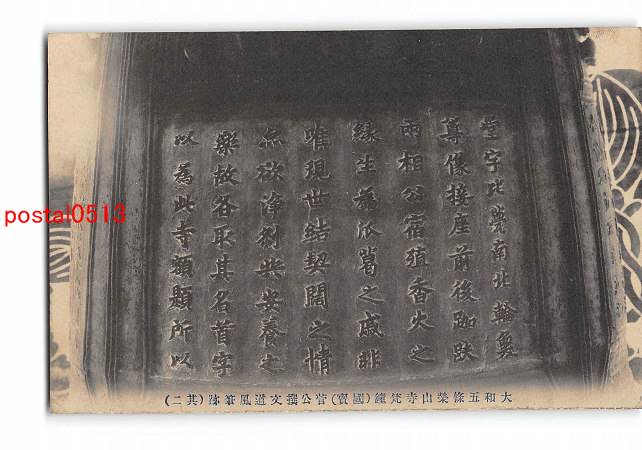 堂宇比甍南北輪奐
尊像接座前後跏趺
兩相公宿殖香火之
緣生爲瓜葛之戚非
唯現世結契闊之情
亦欲淨刹共安養之
樂故各取其名首字
以爲此寺額題所以
大和五條榮山寺梵鐘(國寳)菅公撰文道風筆跡(其二)
postal0513